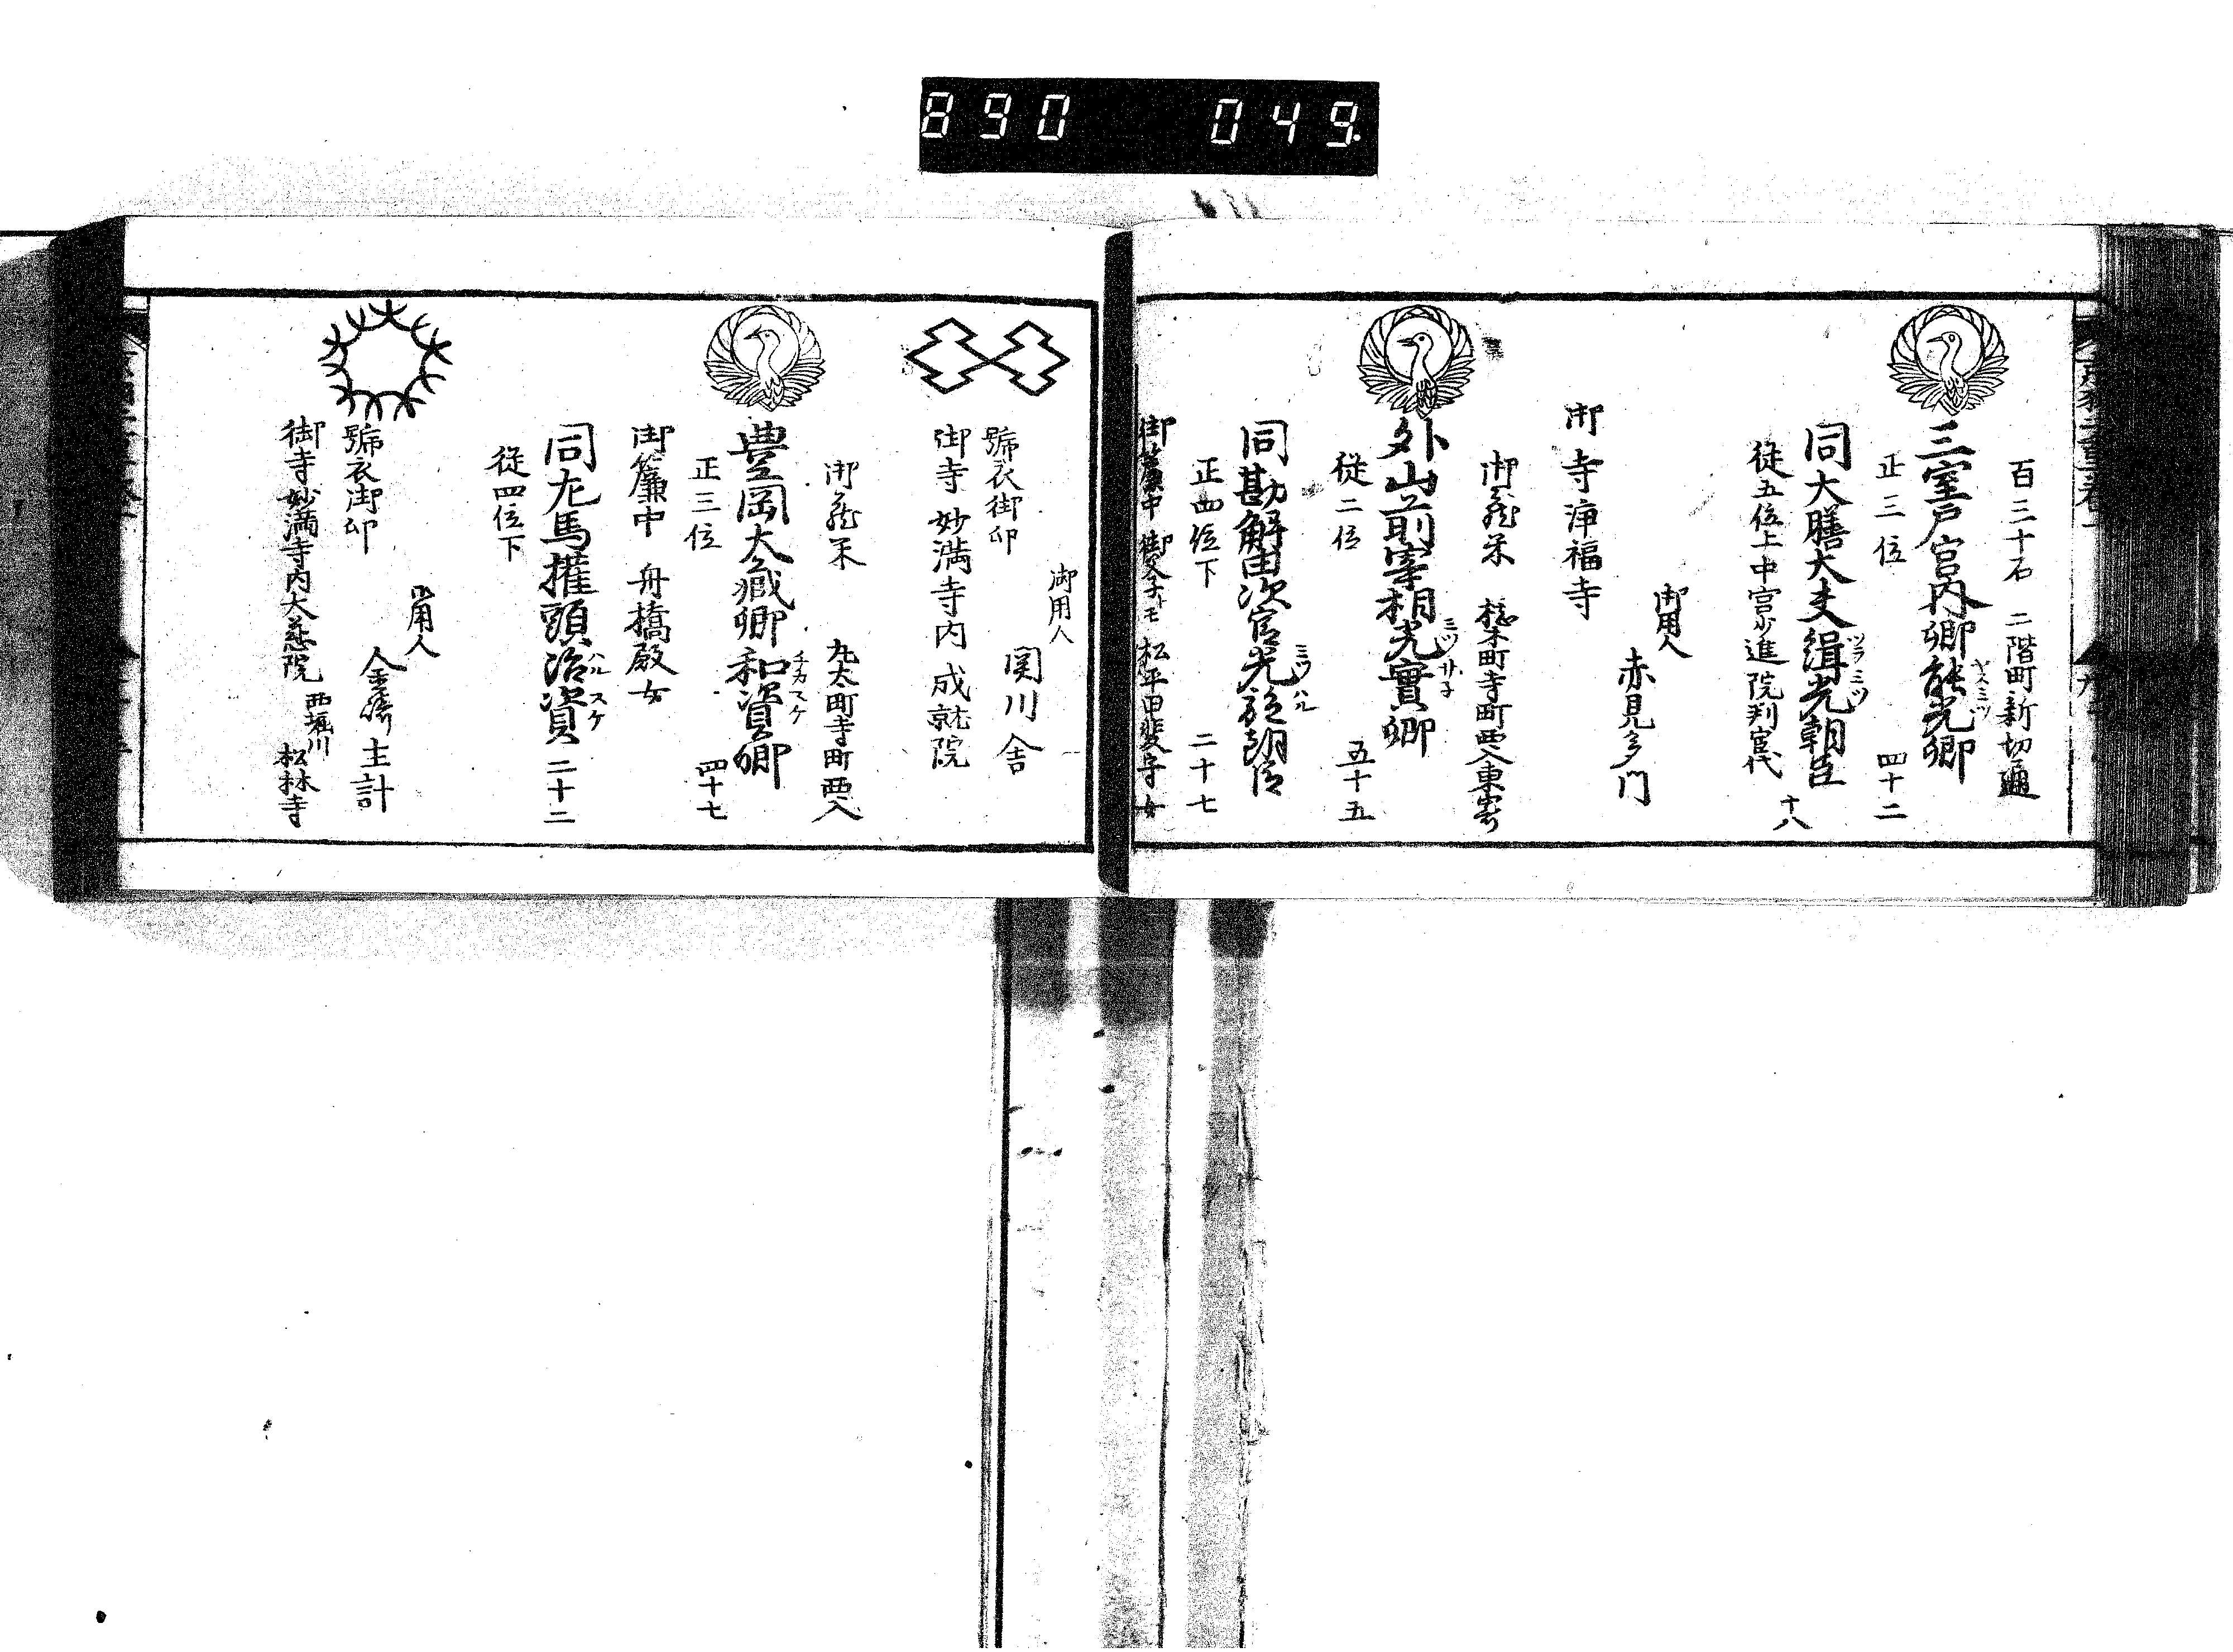 890 049
百三十石 二階町新切通
三室戸宮内卿能光卿
ヤスミツ
正三位 四十二
同大膳大夫緝光朝臣
ツラミツ
従五位上中宮少進院判官代 十八
御用人
赤見多門
御寺浄福寺
御蔵米 椹木町寺町西入東寄
外山前宰相光實卿
ミツザ子
従二位 五十五
同勘解由次官光施朝臣
ミツハル
正四位下 二十七
御簾中 松平甲斐守女
御用人
関川舎
號衣御印
御寺妙満寺内成就院
御蔵米 丸太町寺町西入
豊岡大蔵卿和資卿
チカスケ
正三位 四十七
御簾中 舟橋殿女
同左馬権頭治資 二十二
ハルスケ
従四位下
御用人
主計
號衣御印
御寺妙満寺内大慈院 西堀川 松林寺